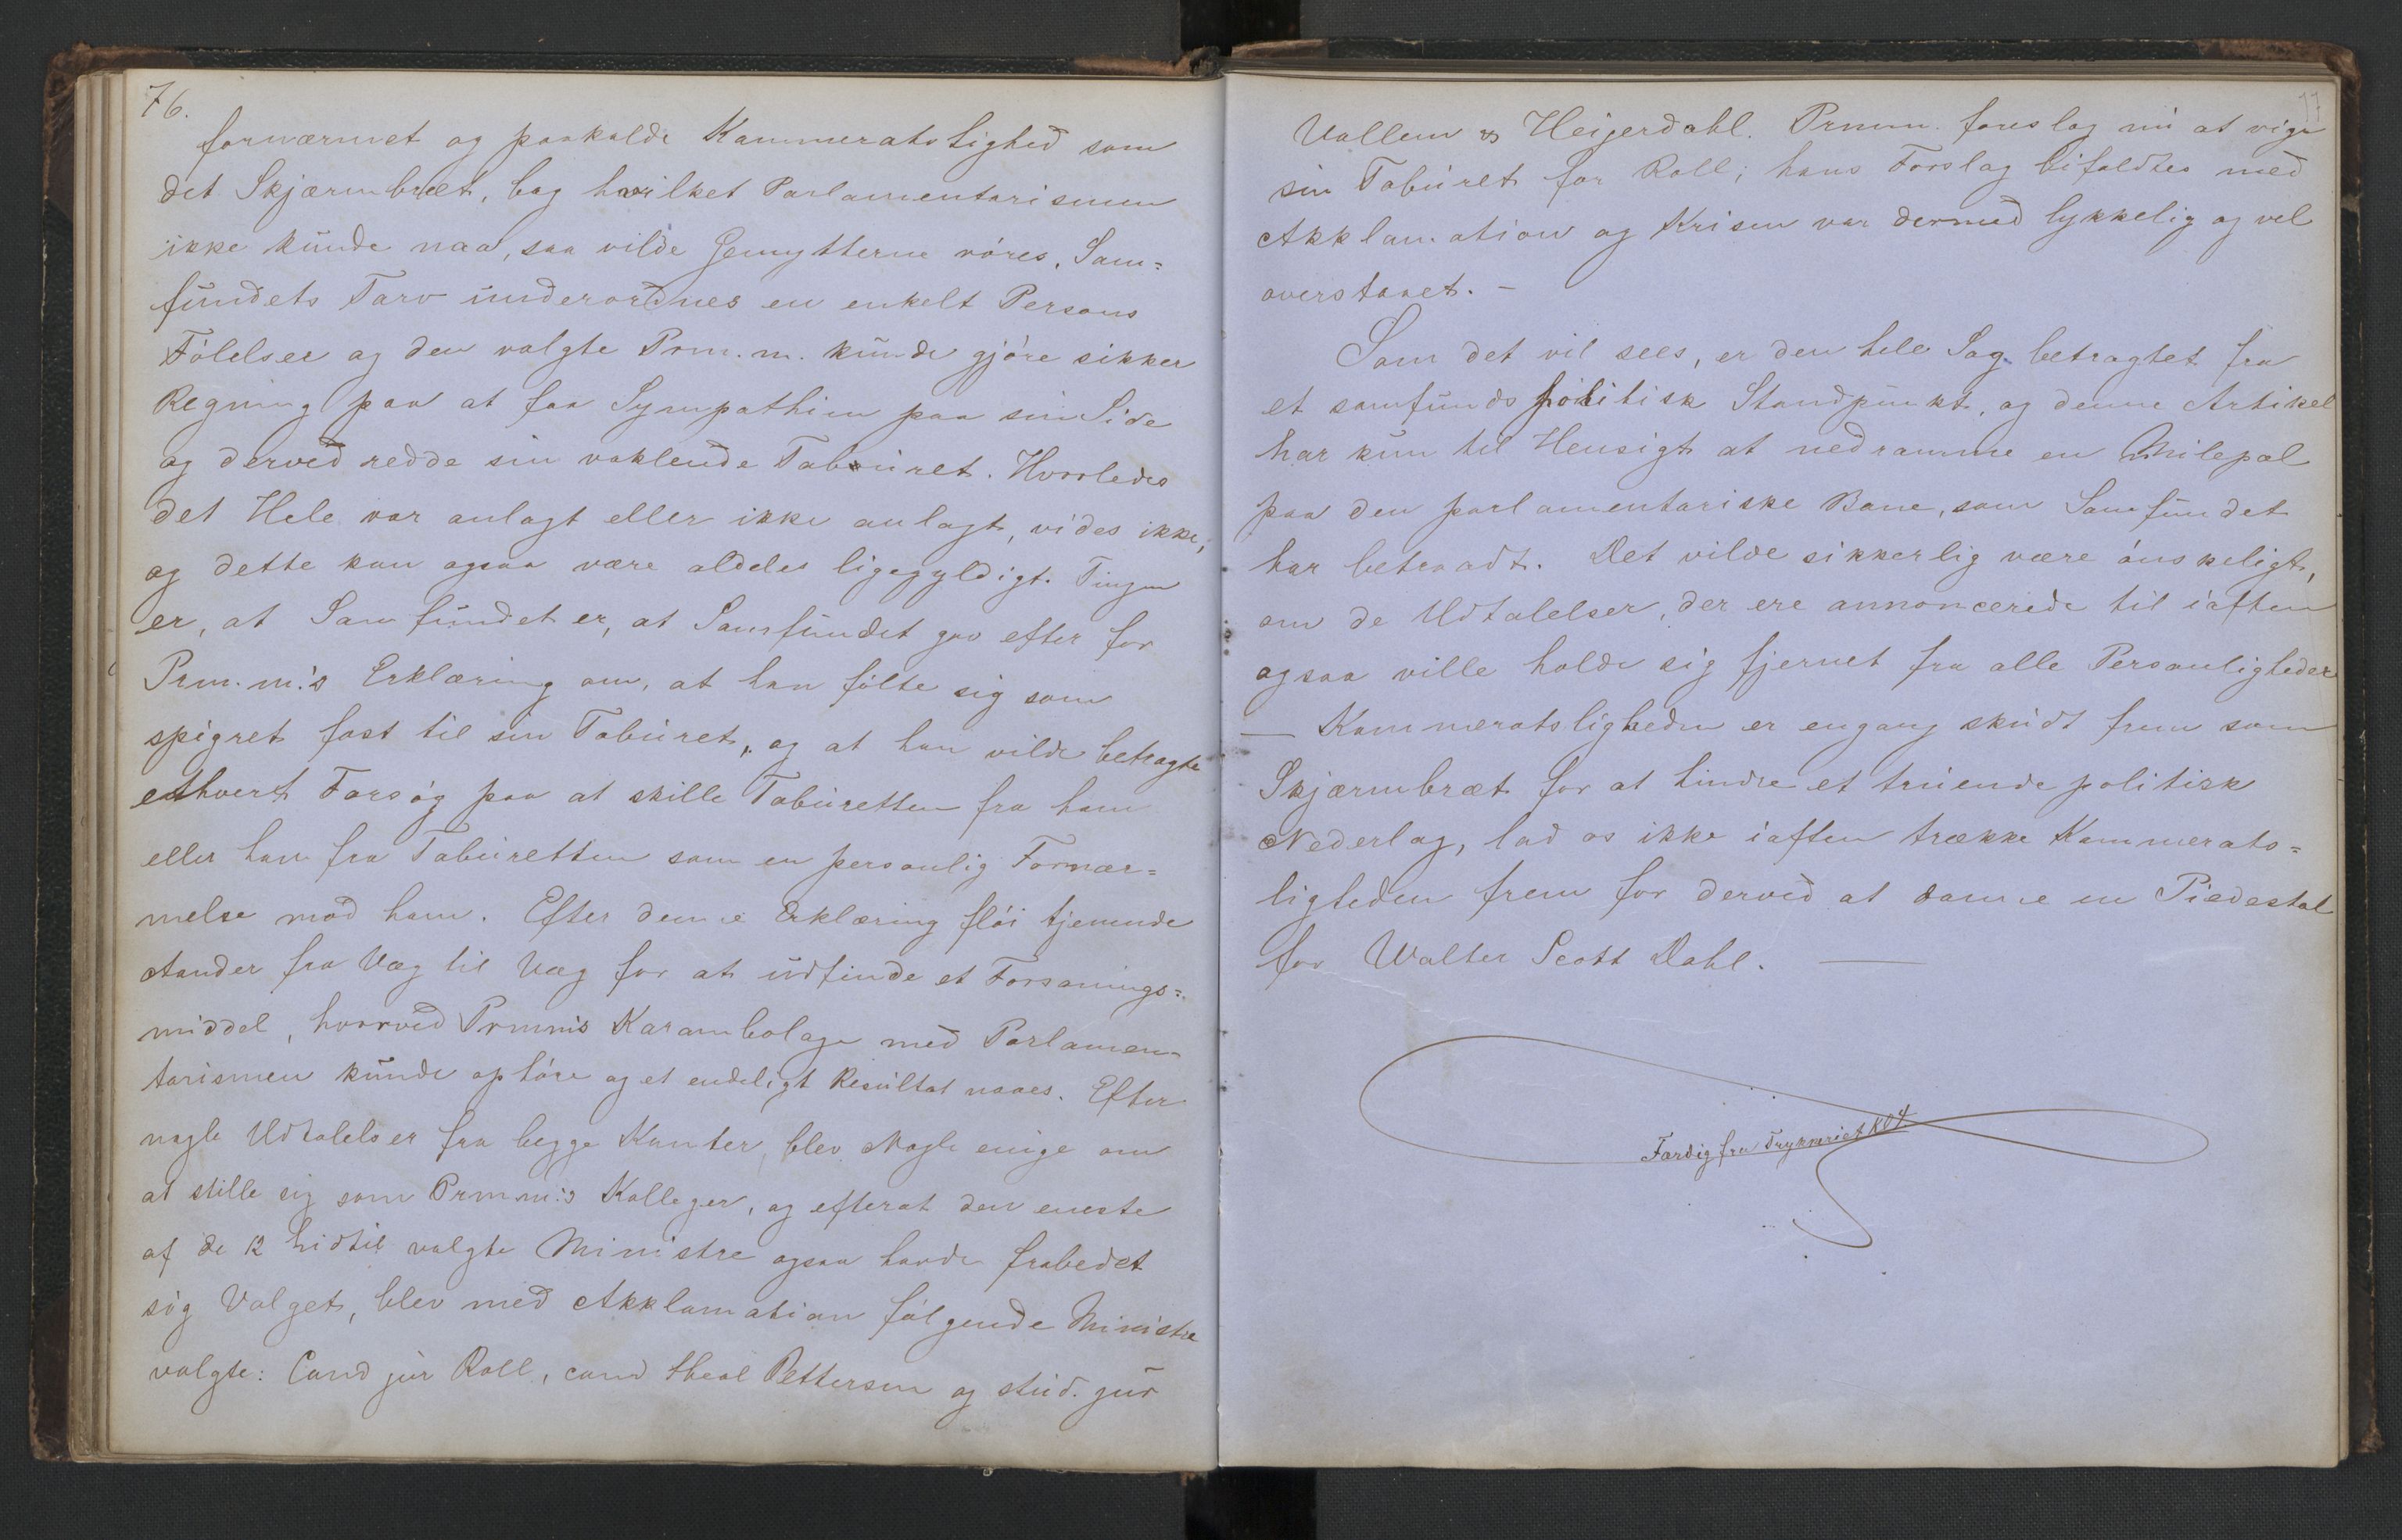 76.
fornærmet og paakalde Kammeratslighed som
det Skjærmbræt, bag hvilket Parlamentarismen
ikke kunde naa, saa vilde Gemytterne röres, Sam=
fundets Tarv underordnes en enkelt Persons
Fölelser og den valgte Prm.m. kunde gjöre sikker
Regning paa at faa Sympathien paa sin Side
og derved redde sin vaklende Taburet. Hvorledes
det Hele var anlagt eller ikke anlagt, vides ikke,
og dette kan ogsaa være aldeles ligegyldigt. Tingen
er, at Samfundet er, at Samfundet gav efter for
Prm.m.'s Erklæring om, at han fölte sig som
spigret fast til sin Taburet, og at han vilde betragte
ethvert Forsög paa at skille Taburetten fra ham
eller ham fra Taburetten som en personlig Fornær=
melse mod ham. Efter denne Erklæring flöi tjenende
Aander fra Væg til Væg for at udfinde et Forsonings=
middel, hvorved Prmms Karambolage med Parlamen=
tarismen kunde ophöre og et endeligt Resultat naaes. Efter
nogle Udtalelser fra begge Kanter, blev Nogle enige om
at stille sig som Prm.m:s Kolleger, og efterat den eneste
af de 12 hidtil valgte Ministre ogsaa havde frabedet
sig Valget, blev med Akklamation fölgende Ministre
valgte: Cand jur Roll, cand theol Pettersen og stud. jur
77
Vullum & Heijerdahl. Prmm. foreslog nu at vige
sin Taburet for Roll; hans Forslag bifaldtes med
Akklamation og Krisen var dermed lykkelig og vel
overstaaet. –
Som det vil sees, er den hele Sag betragtet fra
et samfundspolitisk Standpunkt, og denne Artikel
har kun til Hensigt at nedramme en Milepæl
paa den parlamentariske Bane, som Samfundet
har betraadt. Det vilde sikkerlig være önskeligt,
om de Udtalelser, der ere annoncerede til iaften
ogsaa ville holde sig fjernet fra alle Personligheder
— Kammeratsligheden er engang skudt frem som
Skjærmbræt for at hindre et truende politisk
Nederlag, lad os ikke iaften trække Kammerats=
ligheden frem for derved at danne en Piedestal
for Walter Scott Dahl. —
Færdig fra Trykkeriet Kl 4.